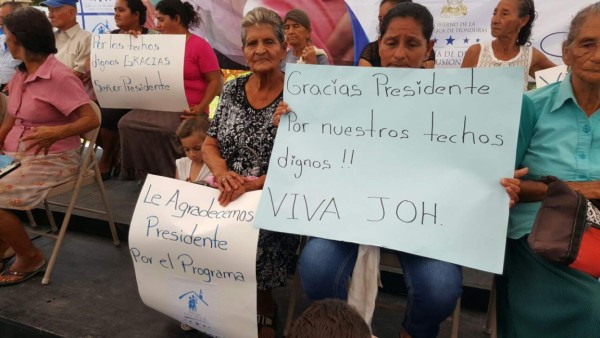 Por los techos
dignos GRACIAS
Señor Presidente
Gracias Presidente
Por nuestros techos
dignos !!
VIVA JOH.
Le Agradecemos
Presidente
Por el Programa
GOBIERNO DE LA
REPÚBLICA DE HONDURAS